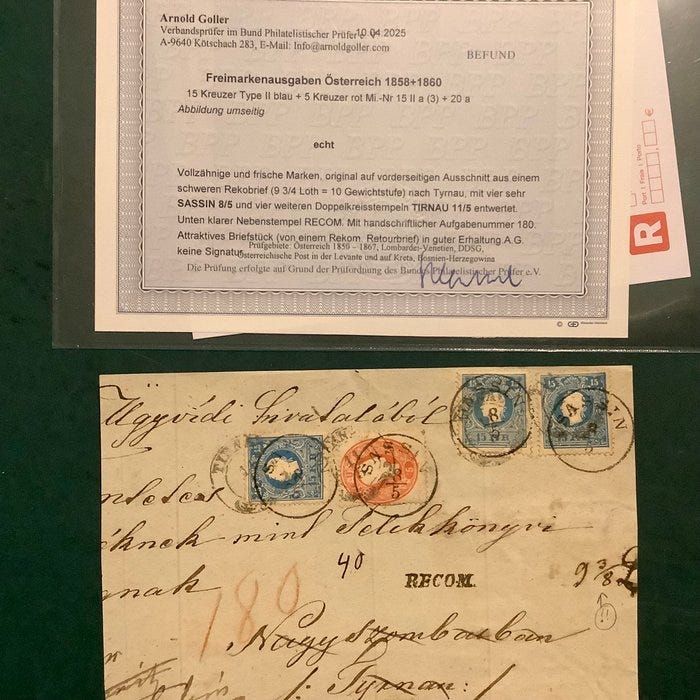 Arnold Goller
Verbandsprüfer im Bund Philatelistischer Prüfer e.V. 10.04.2025
A-9640 Kötschach 283, E-Mail: Info@arnoldgoller.com
BEFUND
Freimarkenausgaben Österreich 1858+1860
15 Kreuzer Type II blau + 5 Kreuzer rot Mi.-Nr 15 II a (3) + 20 a
Abbildung umseitig
echt
Vollzähnige und frische Marken, original auf vorderseitigen Ausschnitt aus einem
schweren Rekobrief (9 3/4 Loth = 10 Gewichtstufe) nach Tyrnau, mit vier sehr
SASSIN 8/5 und vier weiteren Doppelkreisstempeln TIRNAU 11/5 entwertet.
Unten klarer Nebenstempel RECOM. Mit handschriftlicher Aufgabenummer 180.
Attraktives Briefstück (von einem Rekom. Retourbrief) in guter Erhaltung.A.G.
keine Signatur.
Prüfgebiete: Österreich 1850 – 1867, Lombardei-Venetien, DDSG,
Österreichische Post in der Levante und auf Kreta, Bosnien-Herzegowina
Die Prüfung erfolgte auf Grund der Prüfordnung des Bundes Philatelistischer Prüfer e.V.
Port | Frais | Porto
€
R
Ügyvédi hivatalából
SASSIN
8
5
15 KR
SASSIN
8
5
TIRNAU
SASSIN
8/5
mint Telekkönyvi
40
RECOM.
9 3/8 L
180
Nagyszombatban
Tyrnau